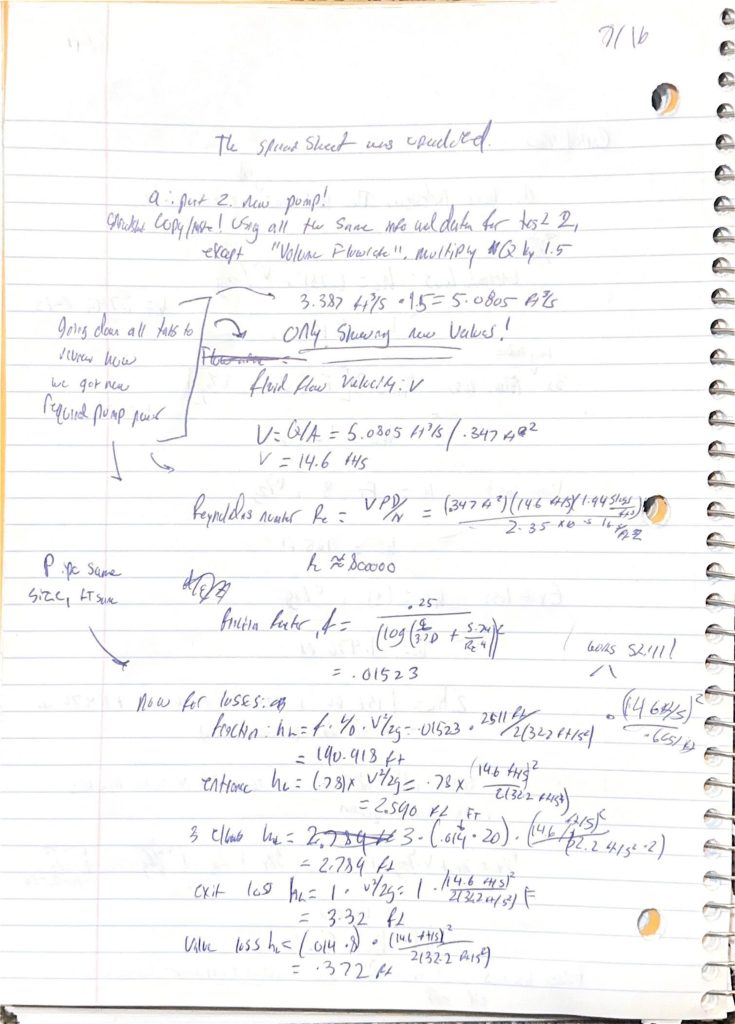 7/16
The spreadsheet was updated.
a: part 2. new pump!
Copy/paste! Using all the same info and data for test 2,
except "Volume Flowrate". multiply Q by 1.5
3.387 ft³/s · 1.5 = 5.0805 ft³/s
Going down all tabs to
review how
we got new
required pump power
Only Showing new values!
fluid flow velocity: V
V = Q/A = 5.0805 ft³/s / .347 ft²
V = 14.6 ft/s
Reynolds number Re = VPD/N = (.347 ft²)(14.6 ft/s)(1.94 slugs/ft³) / 2.35 x10
≈ 800000
Pipe same
size, FT same
friction factor, f = .25 / (log(/3.7D + 5.74/Re·9))²
= .01523
Now for losses:
friction: hL = f · L/D · V²/2g = .01523 · 2511 ft / 2(32.2 ft/s²) · (14.6 ft/s)² / .665 ft
= 190.918 ft
entrance hL = (.78) x V²/2g = .78 x (14.6 ft/s)² / 2(32.2 ft/s²)
= 2.590 ft
FT
3 elbows hL = 3 · (.014 · 20) · (14.6 ft/s)² / (32.2 ft/s² · 2)
= 2.784 ft
exit loss hL = 1 · V²/2g = 1 · (14.6 ft/s)² / 2(32.2 ft/s²) =
= 3.32 ft
Valve loss hL = (.014 · 8) · (14.6 ft/s)² / 2(32.2 ft/s²)
= .372 ft